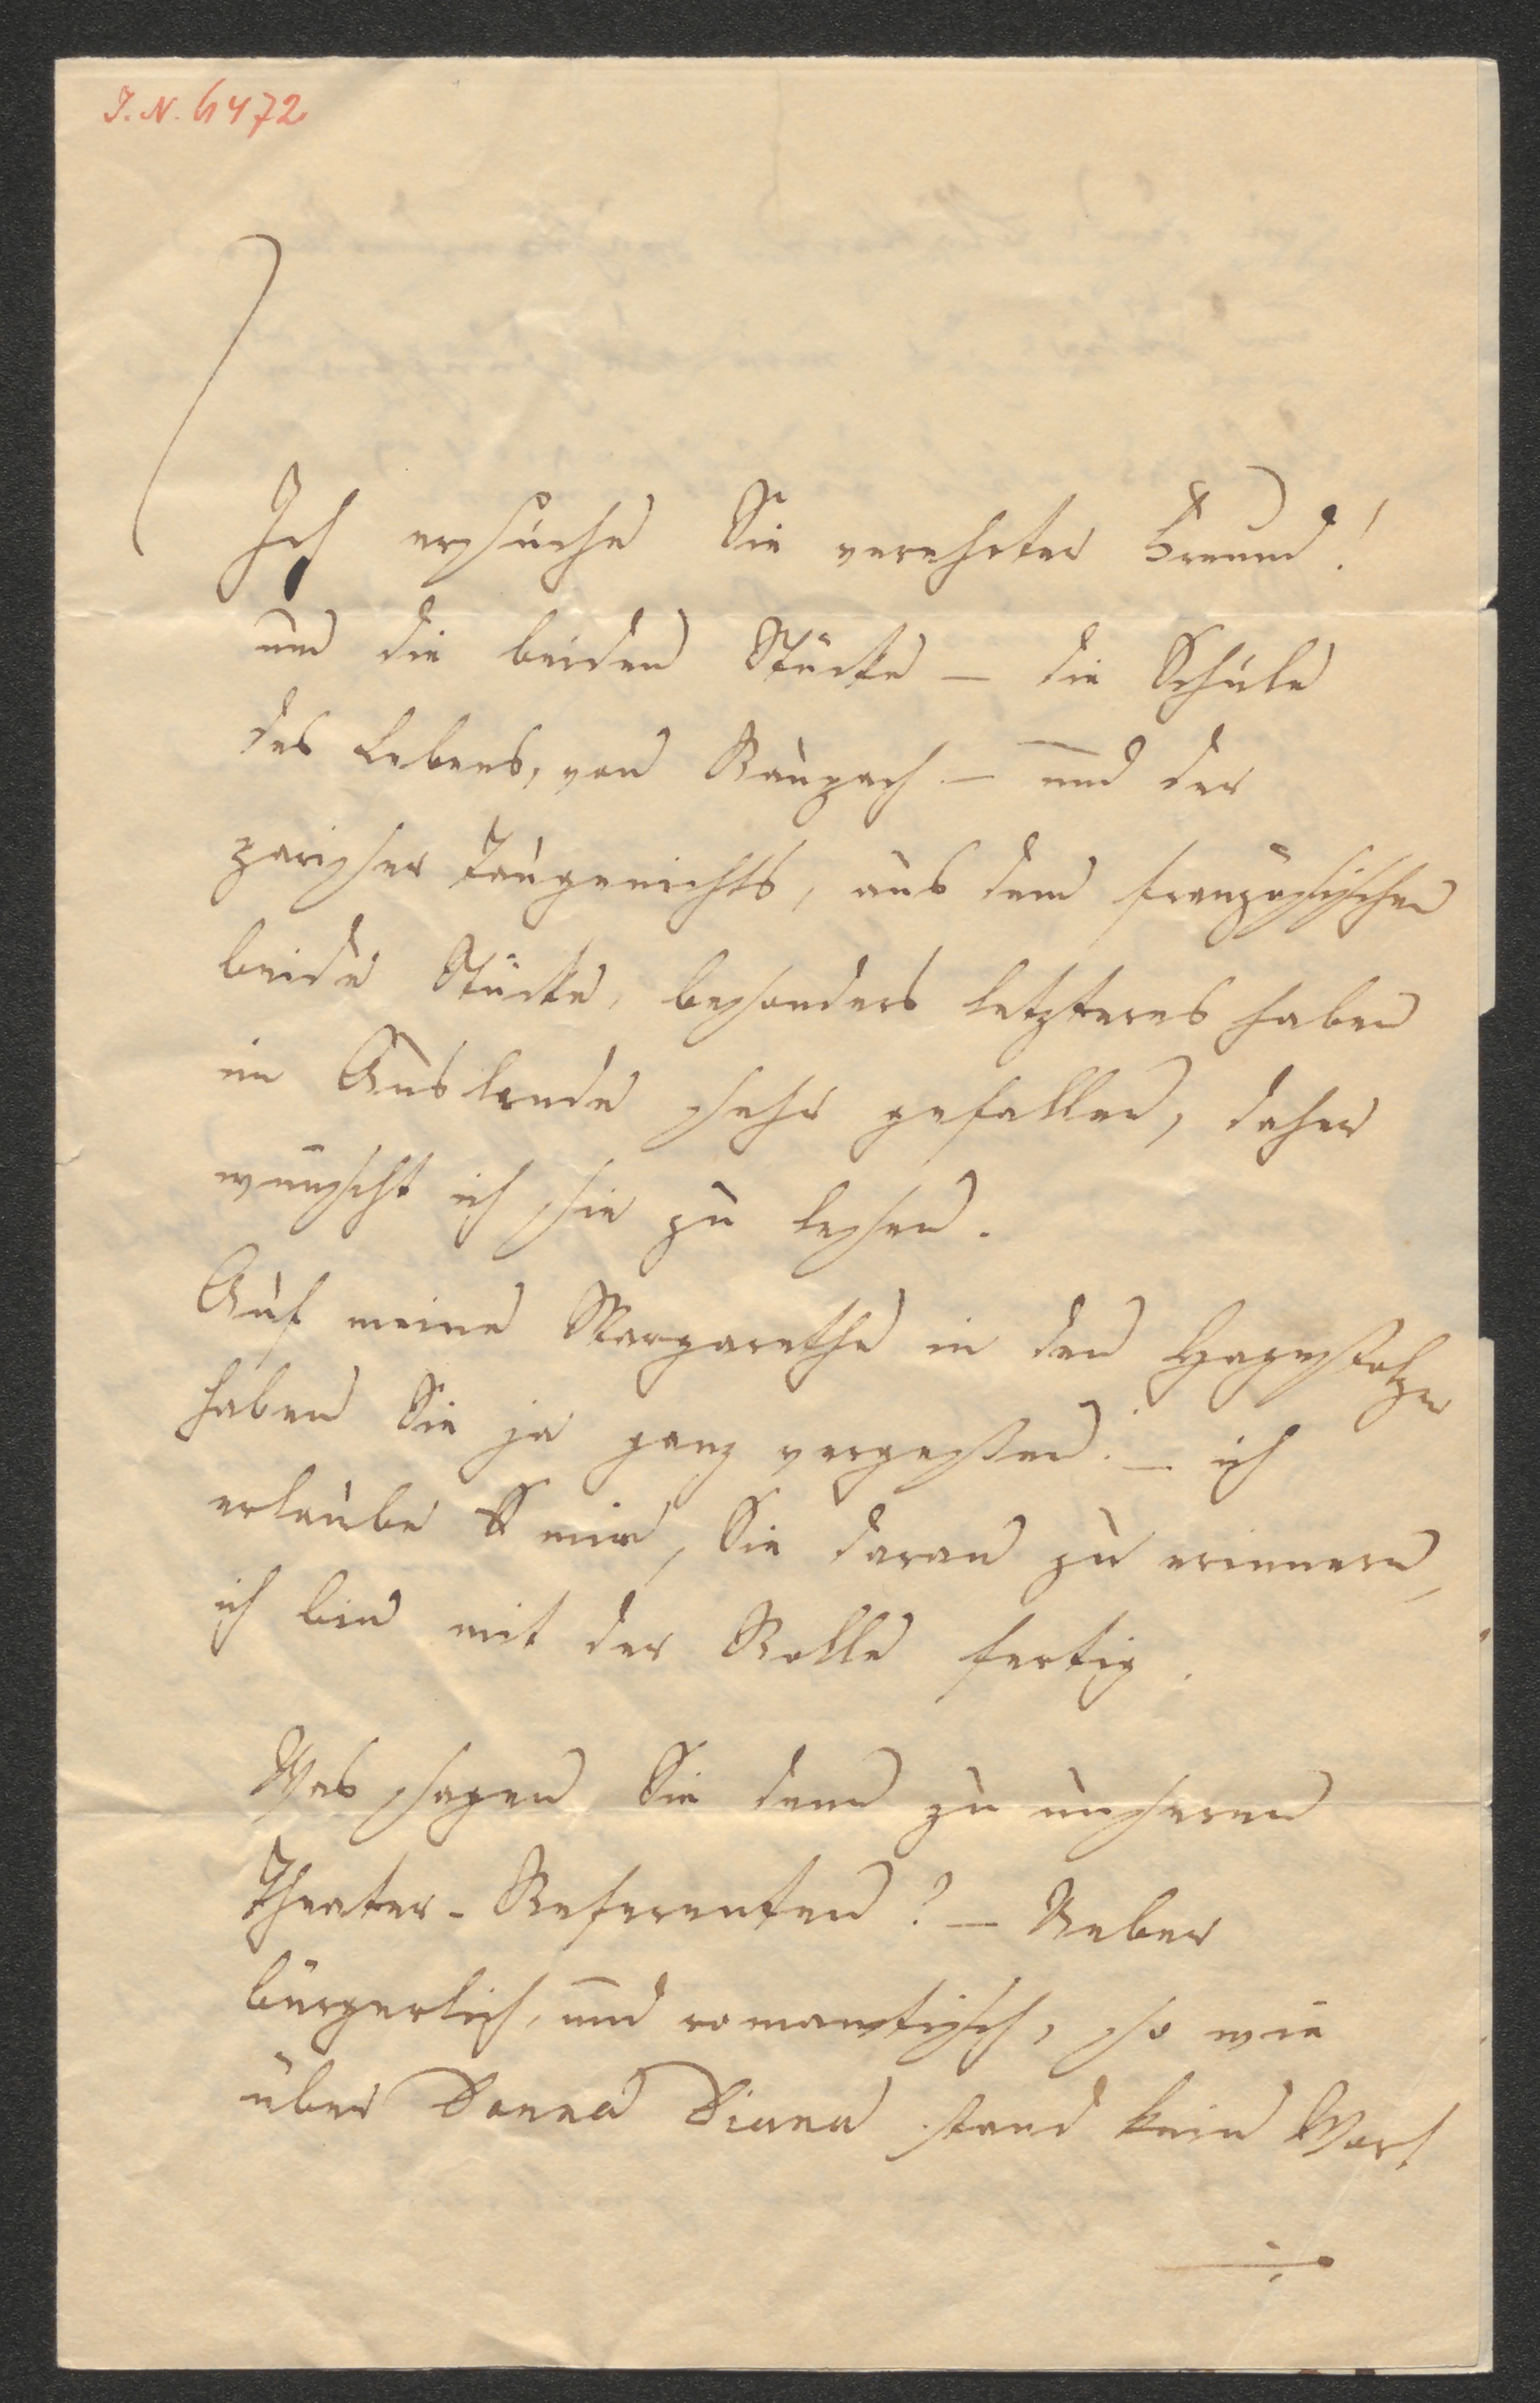 I.N. 6472
Ich ersuche Sie verehrter Freund!
um die beiden Stücke – die Schule
des Lebens, von Raupach – und der
pariser Taugenichts, aus dem französischen
beide Stücke, besonders letzteres haben
im Auslande sehr gefallen, daher
wünscht ich sie zu lesen.
Auf meine Margarethe in den Hagestolzen
haben Sie ja ganz vergessen. – ich
erlaube mir, Sie daran zu erinnern,
ich bin mit der Rolle fertig.
Was sagen Sie denn zu unseren
Theater-Referenten? – Ueber
bürgerlich, und romantisch, so wie
über Donna Diana stand kein Wort